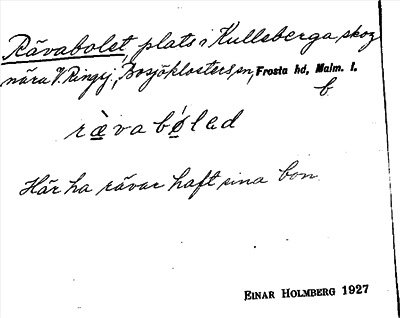 Rävabolet, plats i Kulleberga skog
nära V. Ringsj, Bosjöklosters sn, Frosta hd, Malm. l.
b
rävabóled
Här ha rävar haft sina bon.
EINAR HOLMBERG 1927